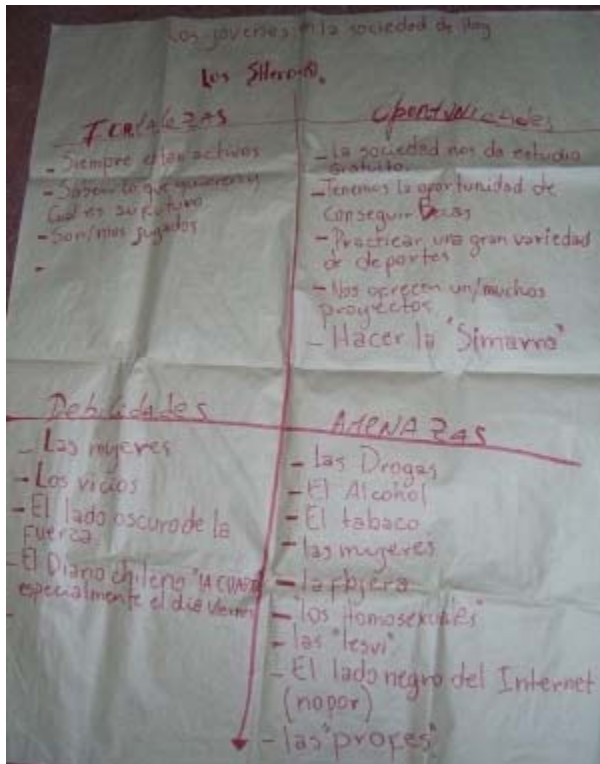 Los jóvenes en la sociedad de Hoy
Los
FORtALEZAS
- Siempre estan activos
- Saben lo que quieren y
Cual es su futuro
- Son/mos jugados
-
Oportunidades
- La sociedad nos da estudio
gratuito.
- Tenemos la oportunidad de
Conseguir Becas
- Practicar una gran variedad
de deportes
- Nos ofrecen un/muchos
proyectos
- Hacer la "Simarra"
Debilidades
- Las mujeres
- Los vicios
- El lado oscuro de la
Fuerza.
- El Diario chileno "LA CUARTA"
especialmente el dia viernes
-
AMENAZAS
- las Drogas
- El Alcohol
- El tabaco
- las mujeres
- la flojera
- los Homosexuales"
- las "lesvi".
- El lado negro del Internet
(nopor)
- las "profes".